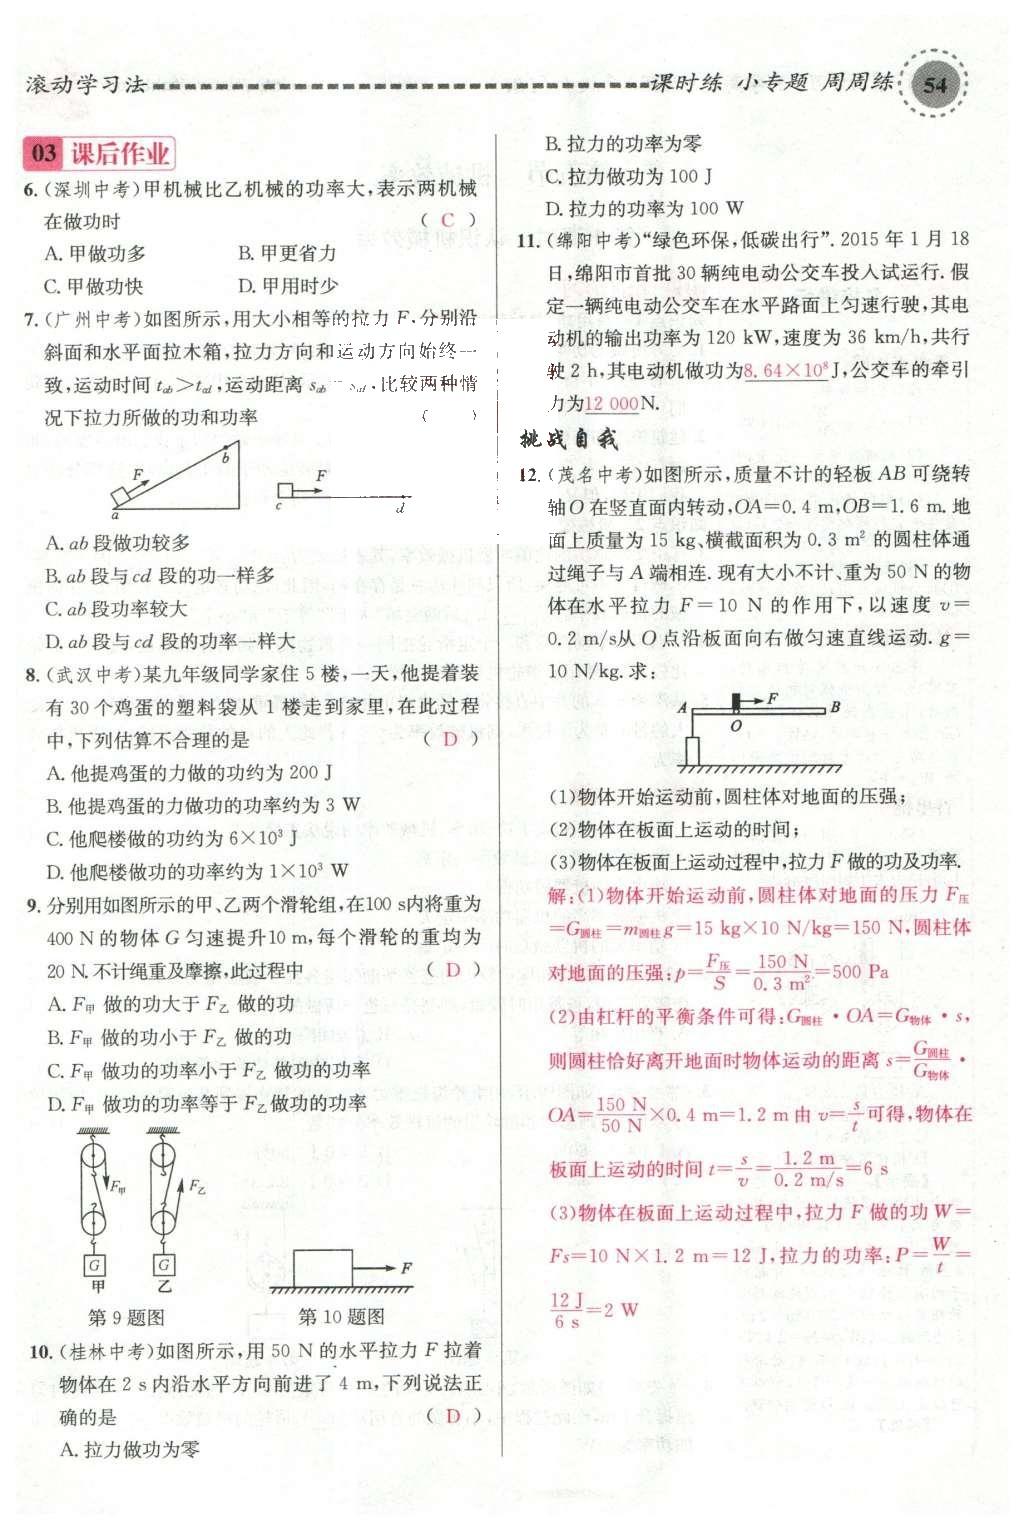 滚动学习法 课时练 小专题 周周练 54
03 课后作业
6. (深圳中考)甲机械比乙机械的功率大,表示两机械
在做功时 ( C )
A. 甲做功多 B. 甲更省力
C. 甲做功快 D. 甲用时少
7. (广州中考)如图所示,用大小相等的拉力 F,分别沿
斜面和水平面拉木箱,拉力方向和运动方向始终一
致,运动时间 tab>tcd,运动距离 sab scd.比较两种情
况下拉力所做的功和功率 ( )
F b a
F c d
A. ab 段做功较多
B. ab 段与 cd 段的功一样多
C. ab 段功率较大
D. ab 段与 cd 段的功率一样大
8. (武汉中考)某九年级同学家住 5 楼,一天,他提着装
有 30 个鸡蛋的塑料袋从 1 楼走到家里,在此过程
中,下列估算不合理的是 ( D )
A. 他提鸡蛋的力做的功约为 200 J
B. 他提鸡蛋的力做功的功率约为 3 W
C. 他爬楼做的功约为 6×10³ J
D. 他爬楼做功的功率约为 1×10³ W
9. 分别用如图所示的甲、乙两个滑轮组,在100 s内将重为
400 N 的物体 G 匀速提升10 m,每个滑轮的重均为
20 N.不计绳重及摩擦,此过程中 ( D )
A. F甲 做的功大于 F乙 做的功
B. F甲 做的功小于 F乙 做的功
C. F甲 做功的功率小于 F乙 做功的功率
D. F甲 做功的功率等于 F乙做功的功率
F甲 F乙
G G F
甲 乙
第 9 题图 第 10 题图
10. (桂林中考)如图所示,用 50 N 的水平拉力 F 拉着
物体在 2 s 内沿水平方向前进了 4 m,下列说法正
确的是 ( D )
A. 拉力做功为零
B. 拉力的功率为零
C. 拉力做功为 100 J
D. 拉力的功率为 100 W
11. (绵阳中考)“绿色环保,低碳出行”. 2015 年 1 月 18
日,绵阳市首批 30 辆纯电动公交车投入试运行. 假
定一辆纯电动公交车在水平路面上匀速行驶,其电
动机的输出功率为 120 kW,速度为 36 km/h,共行
驶 2 h,其电动机做功为8.64×10⁸J,公交车的牵引
力为12 000N.
挑战自我
12. (茂名中考)如图所示,质量不计的轻板 AB 可绕转
轴O 在竖直面内转动,OA=0.4 m,OB=1.6 m. 地
面上质量为 15 kg、横截面积为 0.3 m² 的圆柱体通
过绳子与 A 端相连. 现有大小不计、重为 50 N 的物
体在水平拉力 F=10 N 的作用下,以速度 v=
0.2 m/s从 O 点沿板面向右做匀速直线运动. g=
10 N/kg. 求:
A F B
O
(1)物体开始运动前,圆柱体对地面的压强;
(2)物体在板面上运动的时间;
(3)物体在板面上运动过程中,拉力 F 做的功及功率.
解:(1)物体开始运动前,圆柱体对地面的压力 F压
=G圆柱=m圆柱g=15 kg×10 N/kg=150 N,圆柱体
对地面的压强:p=F压/S=150 N/0.3 m²=500 Pa
(2)由杠杆的平衡条件可得:G圆柱·OA=G物体·s,
则圆柱恰好离开地面时物体运动的距离 s=G圆柱/G物体·
OA=150 N/50 N×0.4 m=1.2 m 由 v=s/t可得,物体在
板面上运动的时间 t=s/v=1.2 m/0.2 m/s=6 s
(3)物体在板面上运动过程中,拉力 F 做的功 W=
Fs=10 N×1.2 m=12 J,拉力的功率:P=W/t=
12 J/6 s=2 W